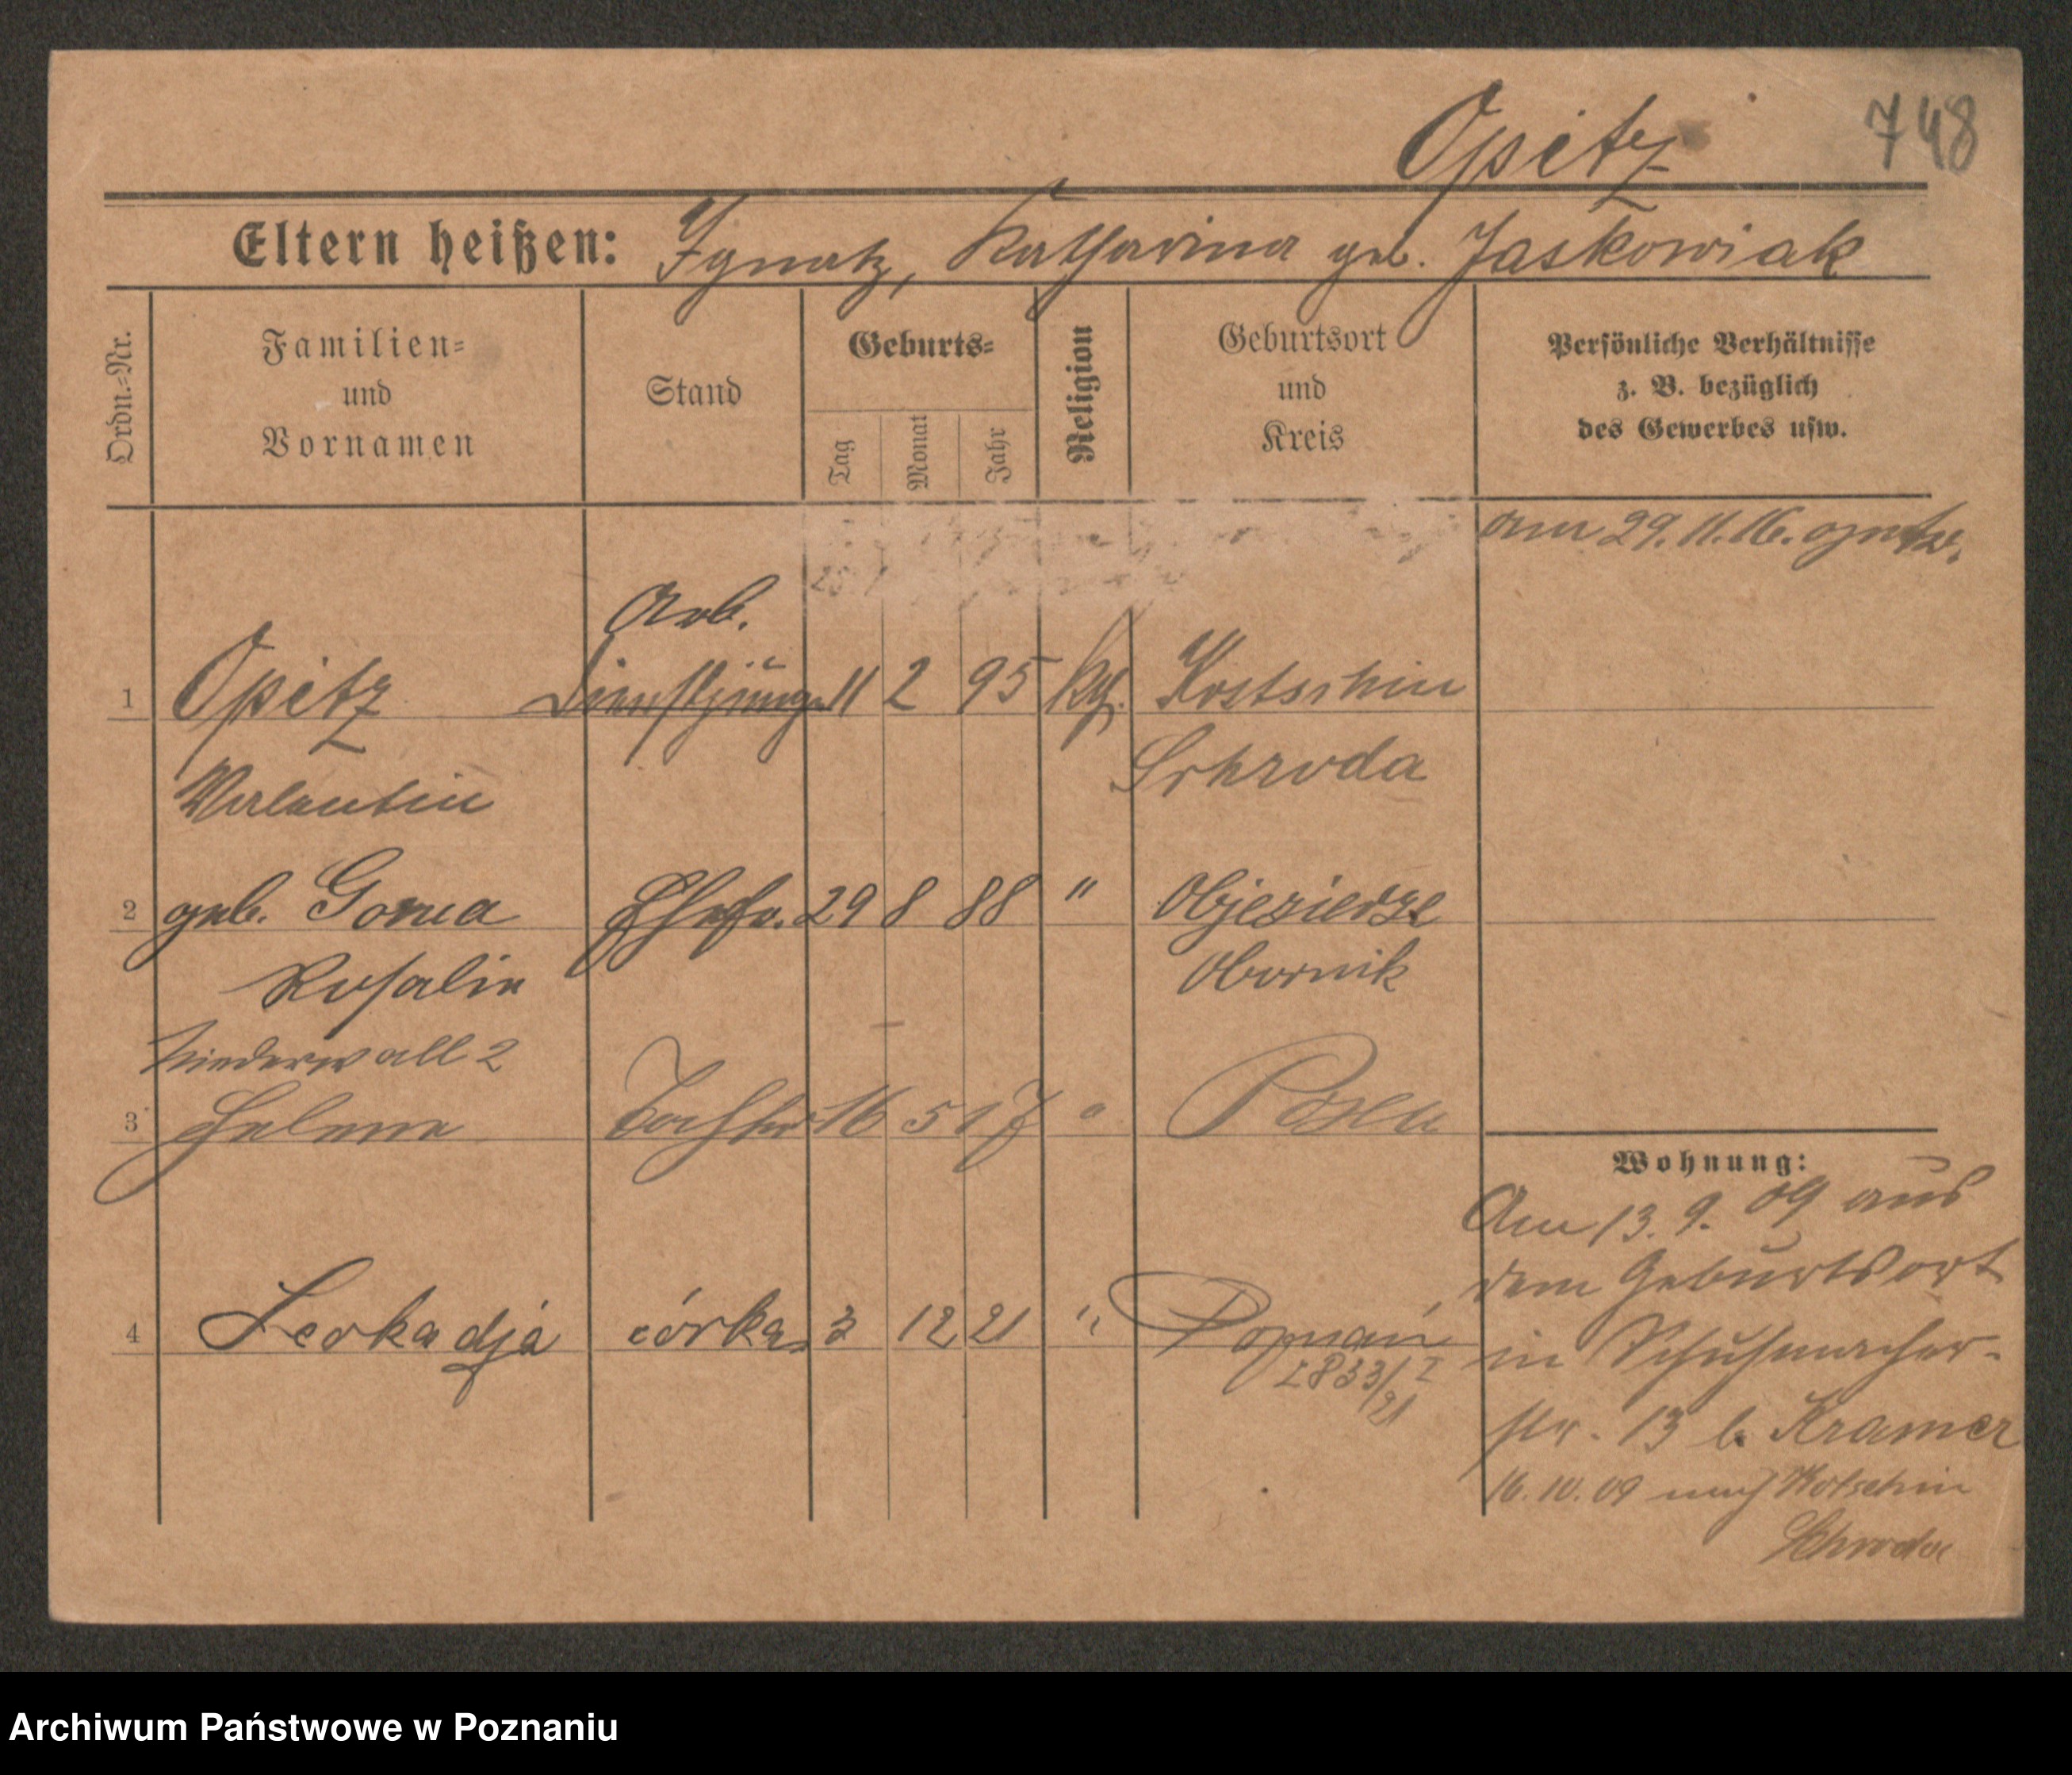 Opitz 748
Eltern heißen: Ignatz, Katharina geb. Jaskowiak
Ordn.-Nr.
Familien-
und
Vornamen
Stand
Geburts-
Tag
Monat
Jahr
Religion
Geburtsort
und
Kreis
Persönliche Verhältnisse
z. B. bezüglich
des Gewerbes usw.
am 29. 11. 16.
Arb.
1 Opitz Dienstjunge 11 2 95 kth. Kostschin
Valentin Schroda
2 geb. Gorna Ehefr. 29 8 88 " Objezierze
Rosalie Obornik
Niederwall 2
3 Helene Tochter 16 5 17 " Posen
4 Leokadja córka 3 12 21 " Poznań
2833/I
21
Wohnung:
Am 13. 9. 09 aus
dem Geburtsort
in Schuhmacher-
str. 13 b. Kramer
16. 10. 09 nach Kostschin
Schroda
Archiwum Państwowe w Poznaniu